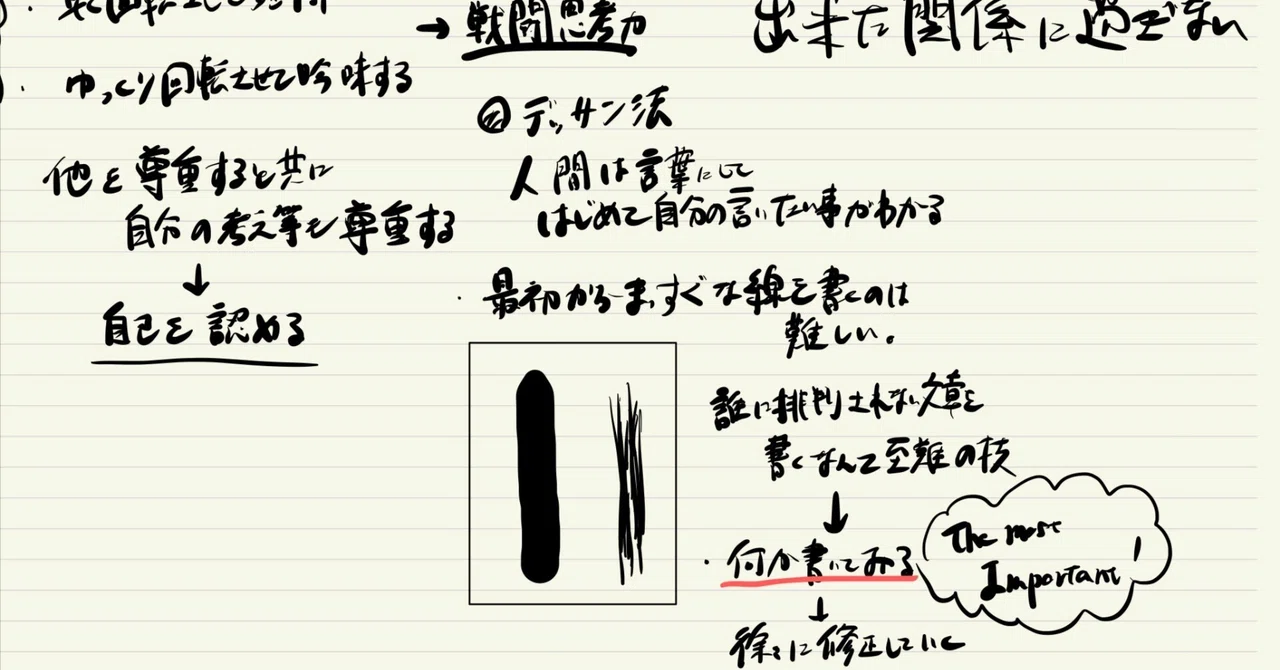 ゆっくり回転させて吟味する
他を尊重すると共に
自分の考え等も尊重する
↓
自己を認める
→ 戦闘思考力
② デッサン法
人間は言葉にして
はじめて自分の言いたい事がわかる
・最初からまっすぐな線を書くのは
難しい。
誰に批判されない文章を
書くなんて至難の技
↓
・何か書いてみる
The most
Important!
↓
徐々に修正していく
出来た関係に過ぎない